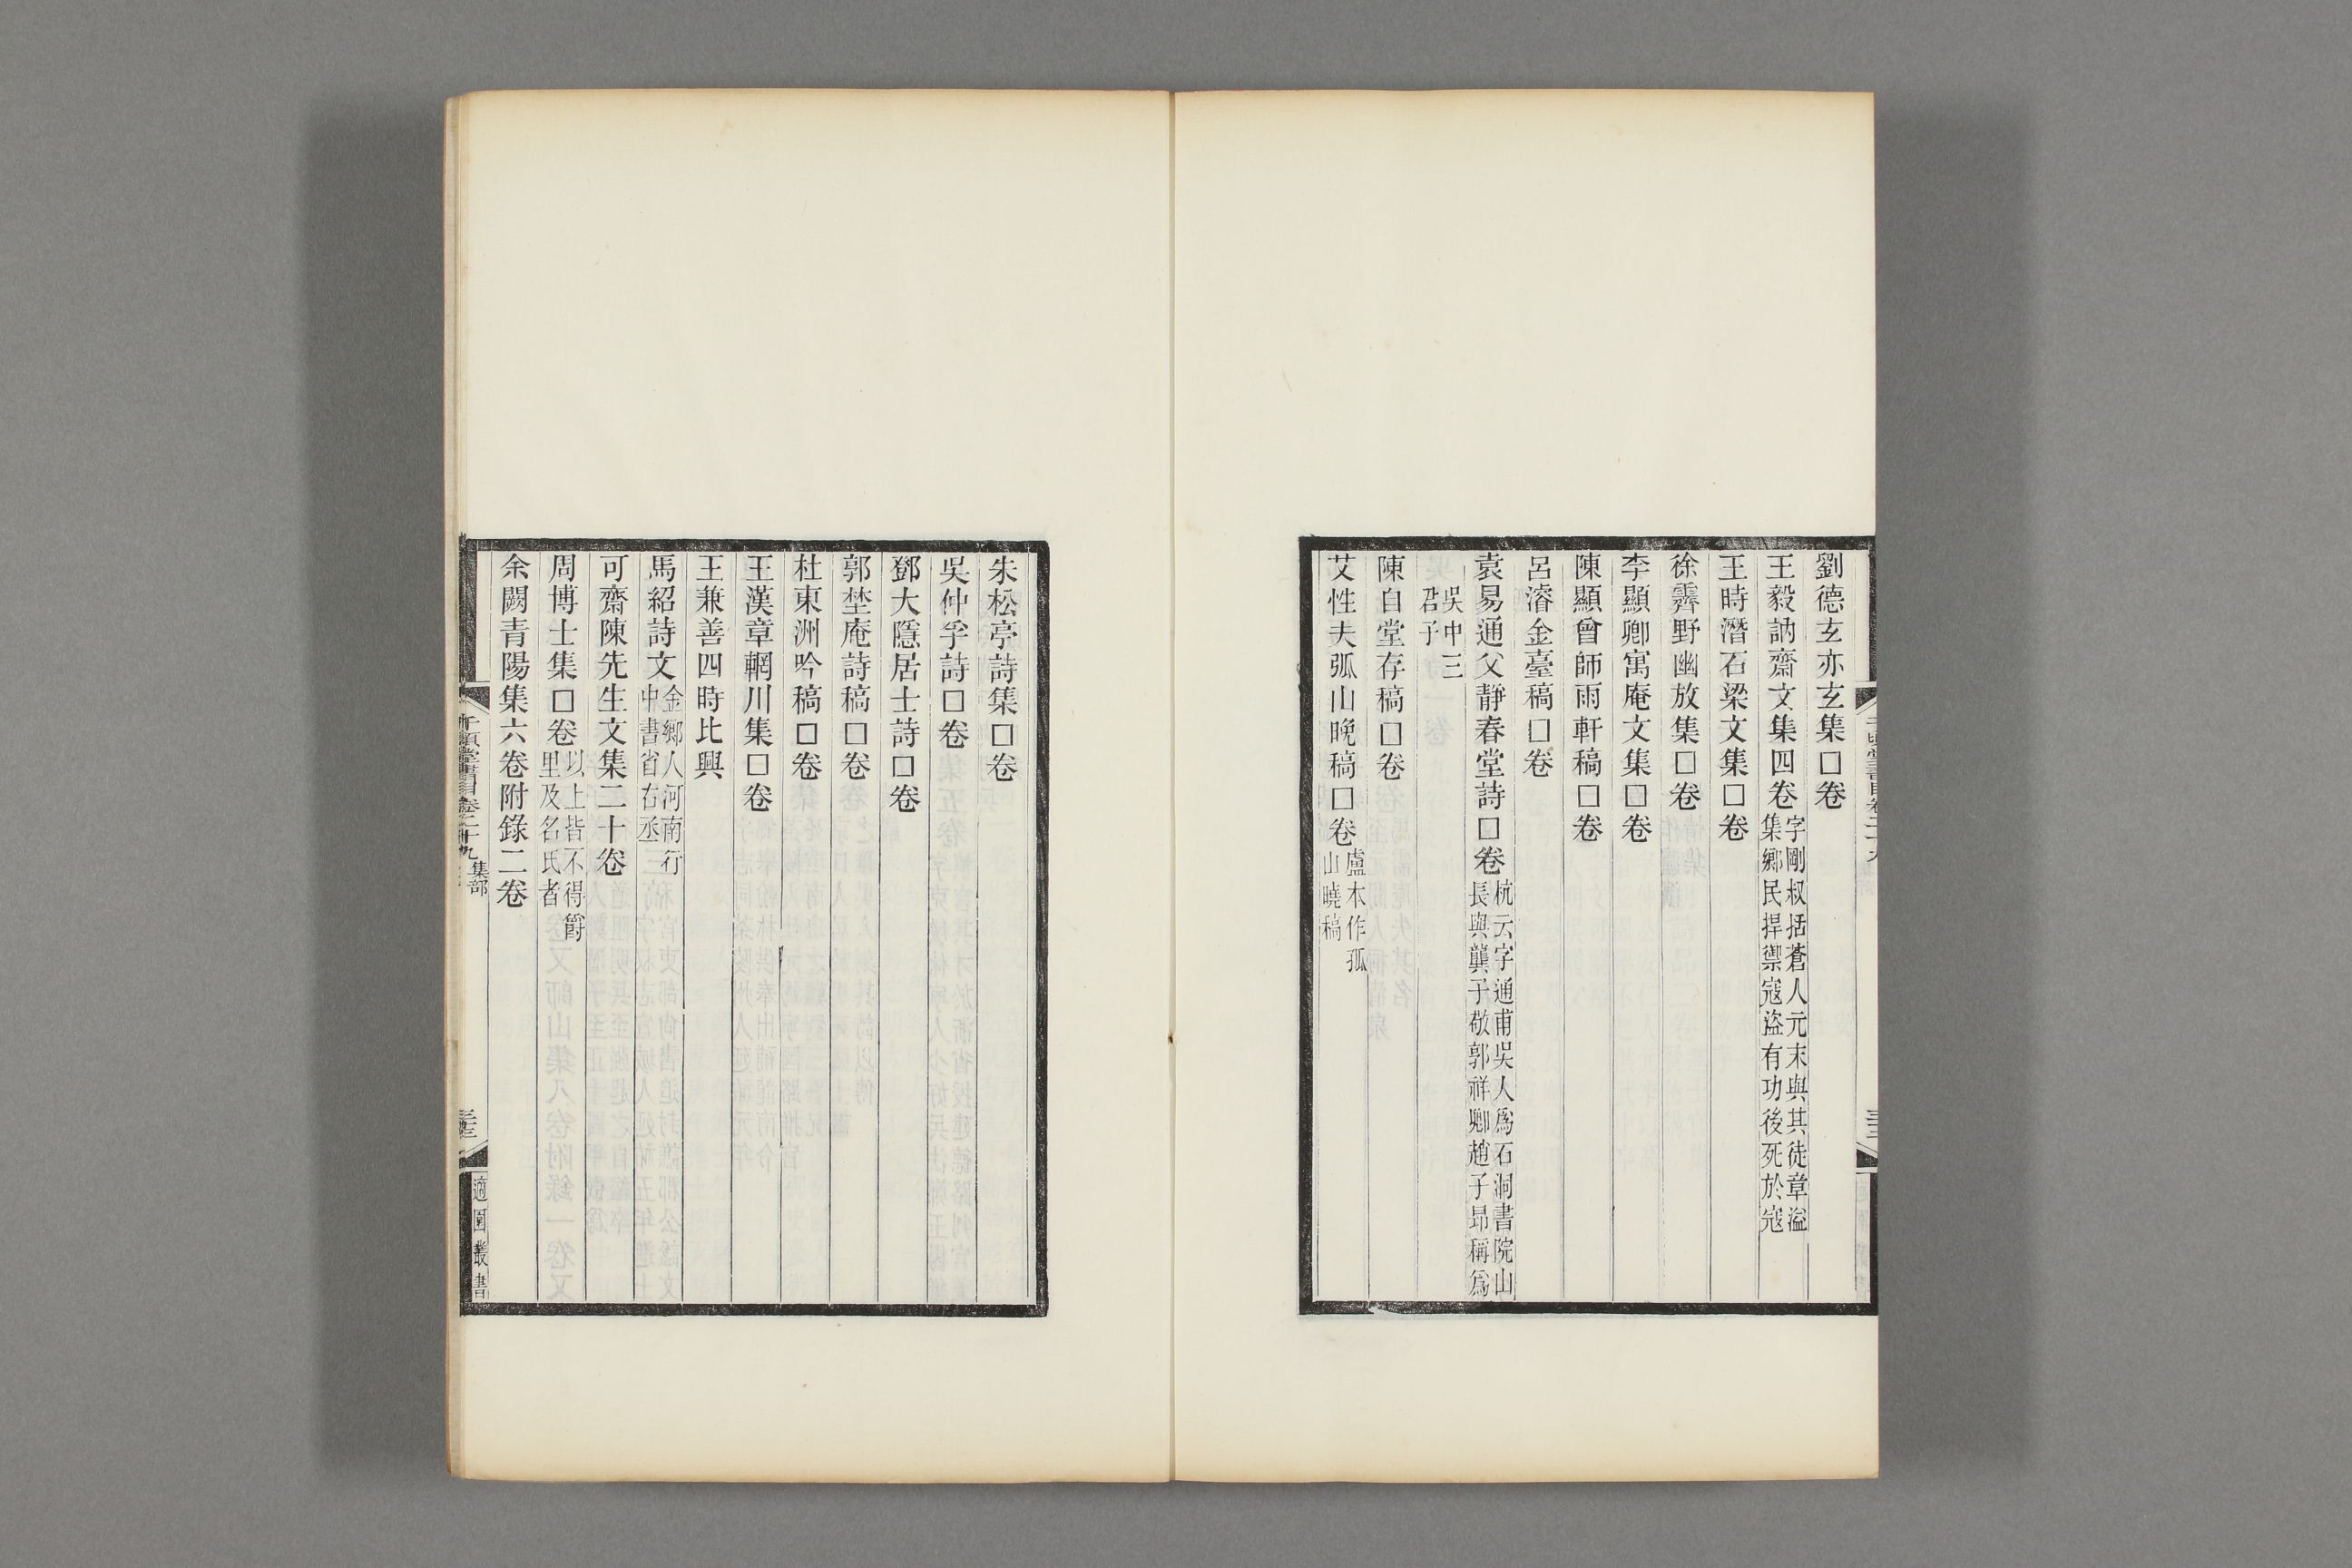 劉德玄亦玄集□卷
王毅訥齋文集四卷字剛叔括蒼人元末與其徒章溢
集鄉民捍禦寇盜有功後死於寇
王時潛石梁文集□卷
徐霽野幽放集□卷
李顯卿寓庵文集□卷
陳顯曾師雨軒稿□卷
呂濬金臺稿□卷
袁易通父靜春堂詩□卷杭云字通甫吳人爲石洞書院山
長與龔子敬郭祥卿趙子昂稱爲
吳中三
君子
陳自堂存稿□卷
艾性夫弧山晚稿□卷盧本作孤
山曉稿
朱松亭詩集□卷
吳仲孚詩□卷
鄧大隱居士詩□卷
郭埜庵詩稿□卷
杜東洲吟稿□卷
王漢章輞川集□卷
王兼善四時比興
馬紹詩文金鄉人河南行
中書省右丞
可齋陳先生文集二十卷
周博士集□卷以上皆不得爵
里及名氏者
余闕青陽集六卷附錄二卷
千頃堂書目卷二十九 集部
適園叢書